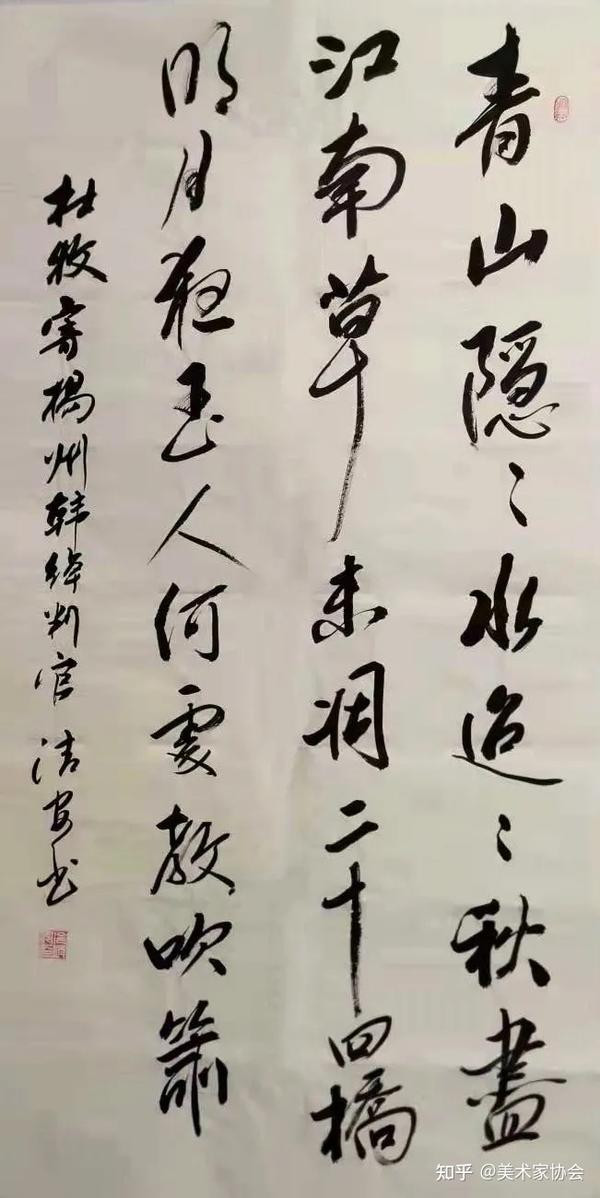 青山隐〻水迢〻秋盡
江南草未凋二十四橋
明月夜玉人何處教吹簫
杜牧寄揚州韩绰判官 清安书
知乎 @美术家协会